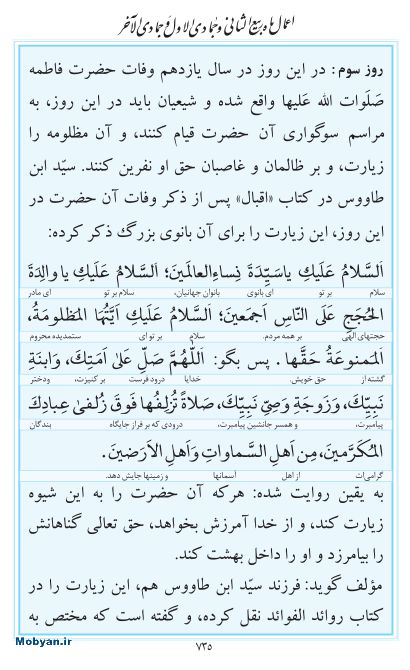 اعمال ماه ربیع الثانی و جمادی الاول و جمادی الآخر
روز سوم : در این روز در سال یازدهم وفات حضرت فاطمه
صَلَوات الله عَلیها واقع شده و شیعیان باید در این روز، به
مراسم سوگواری آن حضرت قیام کنند، و آن مظلومه را
زیارت، و بر ظالمان و غاصبان حق او نفرین کنند. سیّد ابن
طاووس در کتاب «اقبال» پس از ذکر وفات آن حضرت در
این روز، این زیارت را برای آن بانوی بزرگ ذکر کرده:
اَلسَّلامُ عَلَیکِ یاسَیِّدَةَ نِساءِالعالَمینَ؛ اَلسَّلامُ عَلَیکِ یاوالِدَةَ
سلام بر تو ای بانوی بانوان جهانیان، سلام بر تو ای مادر
الحُجَجِ عَلَی النّاسِ اَجمَعینَ؛ اَلسَّلامُ عَلَیکِ اَیَّتُهَا المَظلومَةُ،
حجتهای الهی بر همه مردم. سلام بر تو ای ستمدیده محروم
اَلمَمنوعَةُ حَقَّها . پس بگو: اَللّهُمَّ صَلِّ عَلیٰ اَمَتِکَ، وَابنَةِ
گشته از حق خویش. خدایا درود فرست بر کنیزت، ودختر
نَبِیِّکَ، وَزَوجَةِ وَصِیِّ نَبِیِّکَ، صَلاةً تُزلِفُها فَوقَ زُلفیٰ عِبادِکَ
پیامبرت، و همسر جانشین پیامبرت، درودی که بر فراز جایگاه بندگان
المُکَرَّمینَ، مِن اَهلِ السَّماواتِ وَاَهلِ الاَرَضینَ.
گرامی‌ات از اهل آسمانها و زمینها جایش دهد.
به یقین روایت شده: هرکه آن حضرت را به این شیوه
زیارت کند، و از خدا آمرزش بخواهد، حق تعالی گناهانش
را بیامرزد و او را داخل بهشت کند.
مؤلف گوید: فرزند سیّد ابن طاووس هم، این زیارت را در
کتاب روائد الفوائد نقل کرده، و گفته است که مختص به
۷۳۵
Mobyan.ir